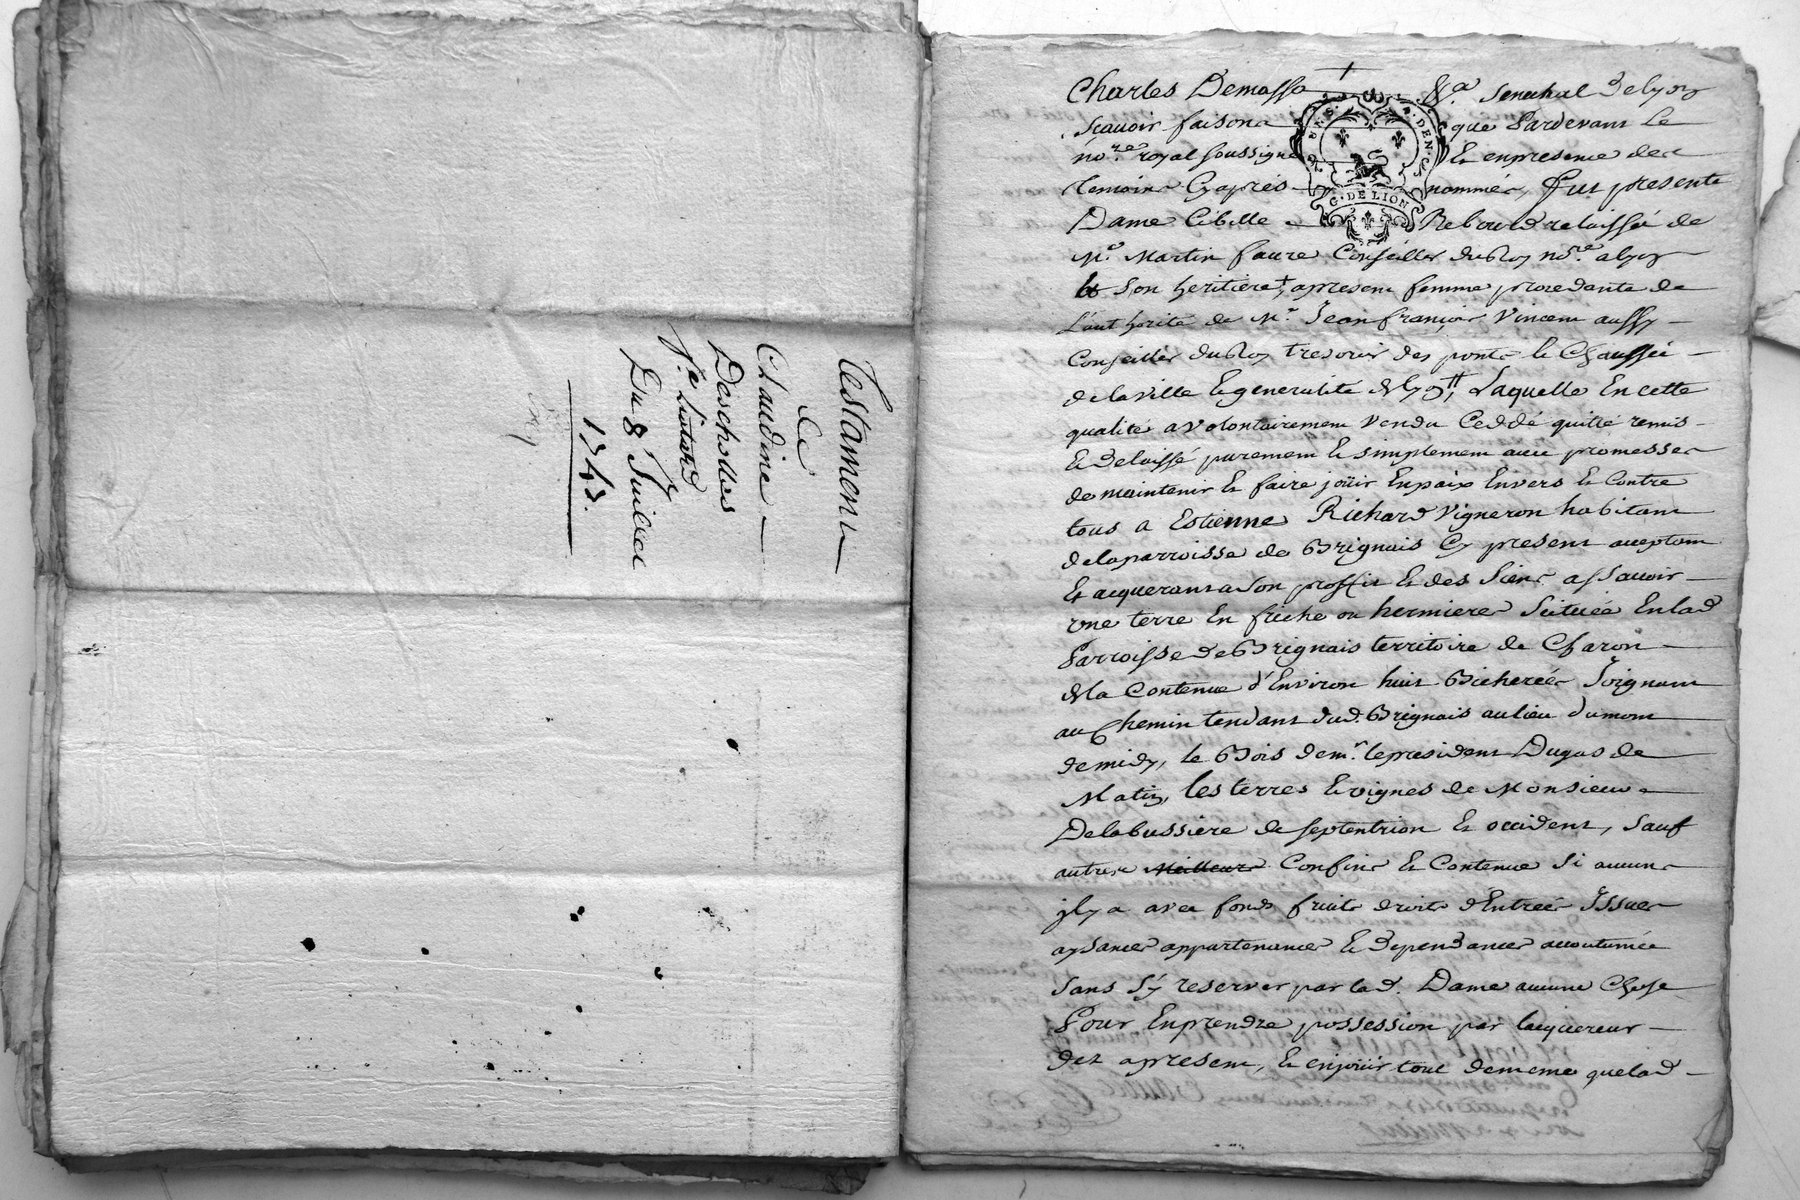 Testament
de
Claudine
Descholles
Du 8 Juillet
1743.
Charles Demasso &.a Senechal Delyon
Scavoir faisons que Pardevant Le
no.re royal soussigné Et en presence des
temoins Cyaprés nommés, fut presente
Dame Cibille Rebould relaissée de
M.e Martin faure Conseiller du Roy no.re alyon
& Son heritiere, apresent femme procedante de
L'authorité de M.r Jean françois Vincent aussy
Conseiller du Roy tresorier des ponts & Chaussée
de la ville & generalité de lyon, Laquelle En cette
qualité a volontairement vendu Ceddé quitté remis
& Delaissé purement & simplement avec promesses
de maintenir Et faire joüir Enpaix Envers Et Contre
tous a Estienne Richard Vigneron habitant
de laparroisse de Brignais Cy present acceptant
Et acquerant a Son proffit Et des Siens assavoir
une terre En friche ou hermieres Scituée En lad
Parroisse de Brignais territoire de Charon
de la Contenue d'Environ huit Bicherées Joignant
au Chemin tendant dud. Brignais au lieu dumont
de midy, le Bois dem.r le president Dugas de
Matin, les terres & vignes de Monsieur
Delabussiere de septentrion Et occident, Sauf
autres Meilleurs Confins Et Contenue Si aucuns
jl y a avec fonds fruits droits d'Entrées Issues
aysances appartenances & Dependances accoutumée
Sans S'y reserver par lad. Dame aucune Chose
Pour Enprendre possession par lacquereur
dez apresent, & enjoüir tout dememe quelad
G. DE LION